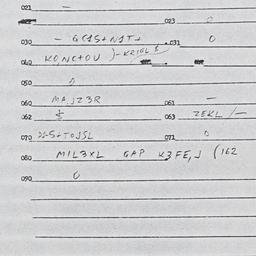 021 —
023 0
030 — G(1S+N1T+ 031 0
040 KO,NC+OU )-KRIGL 8
050 0
060 MA,JZ3R 061 —
062 063 ZEKL /—
070 DI-S+TOJSL 071 0
080 MIL3XL GAP K3FE,J (162
090 0